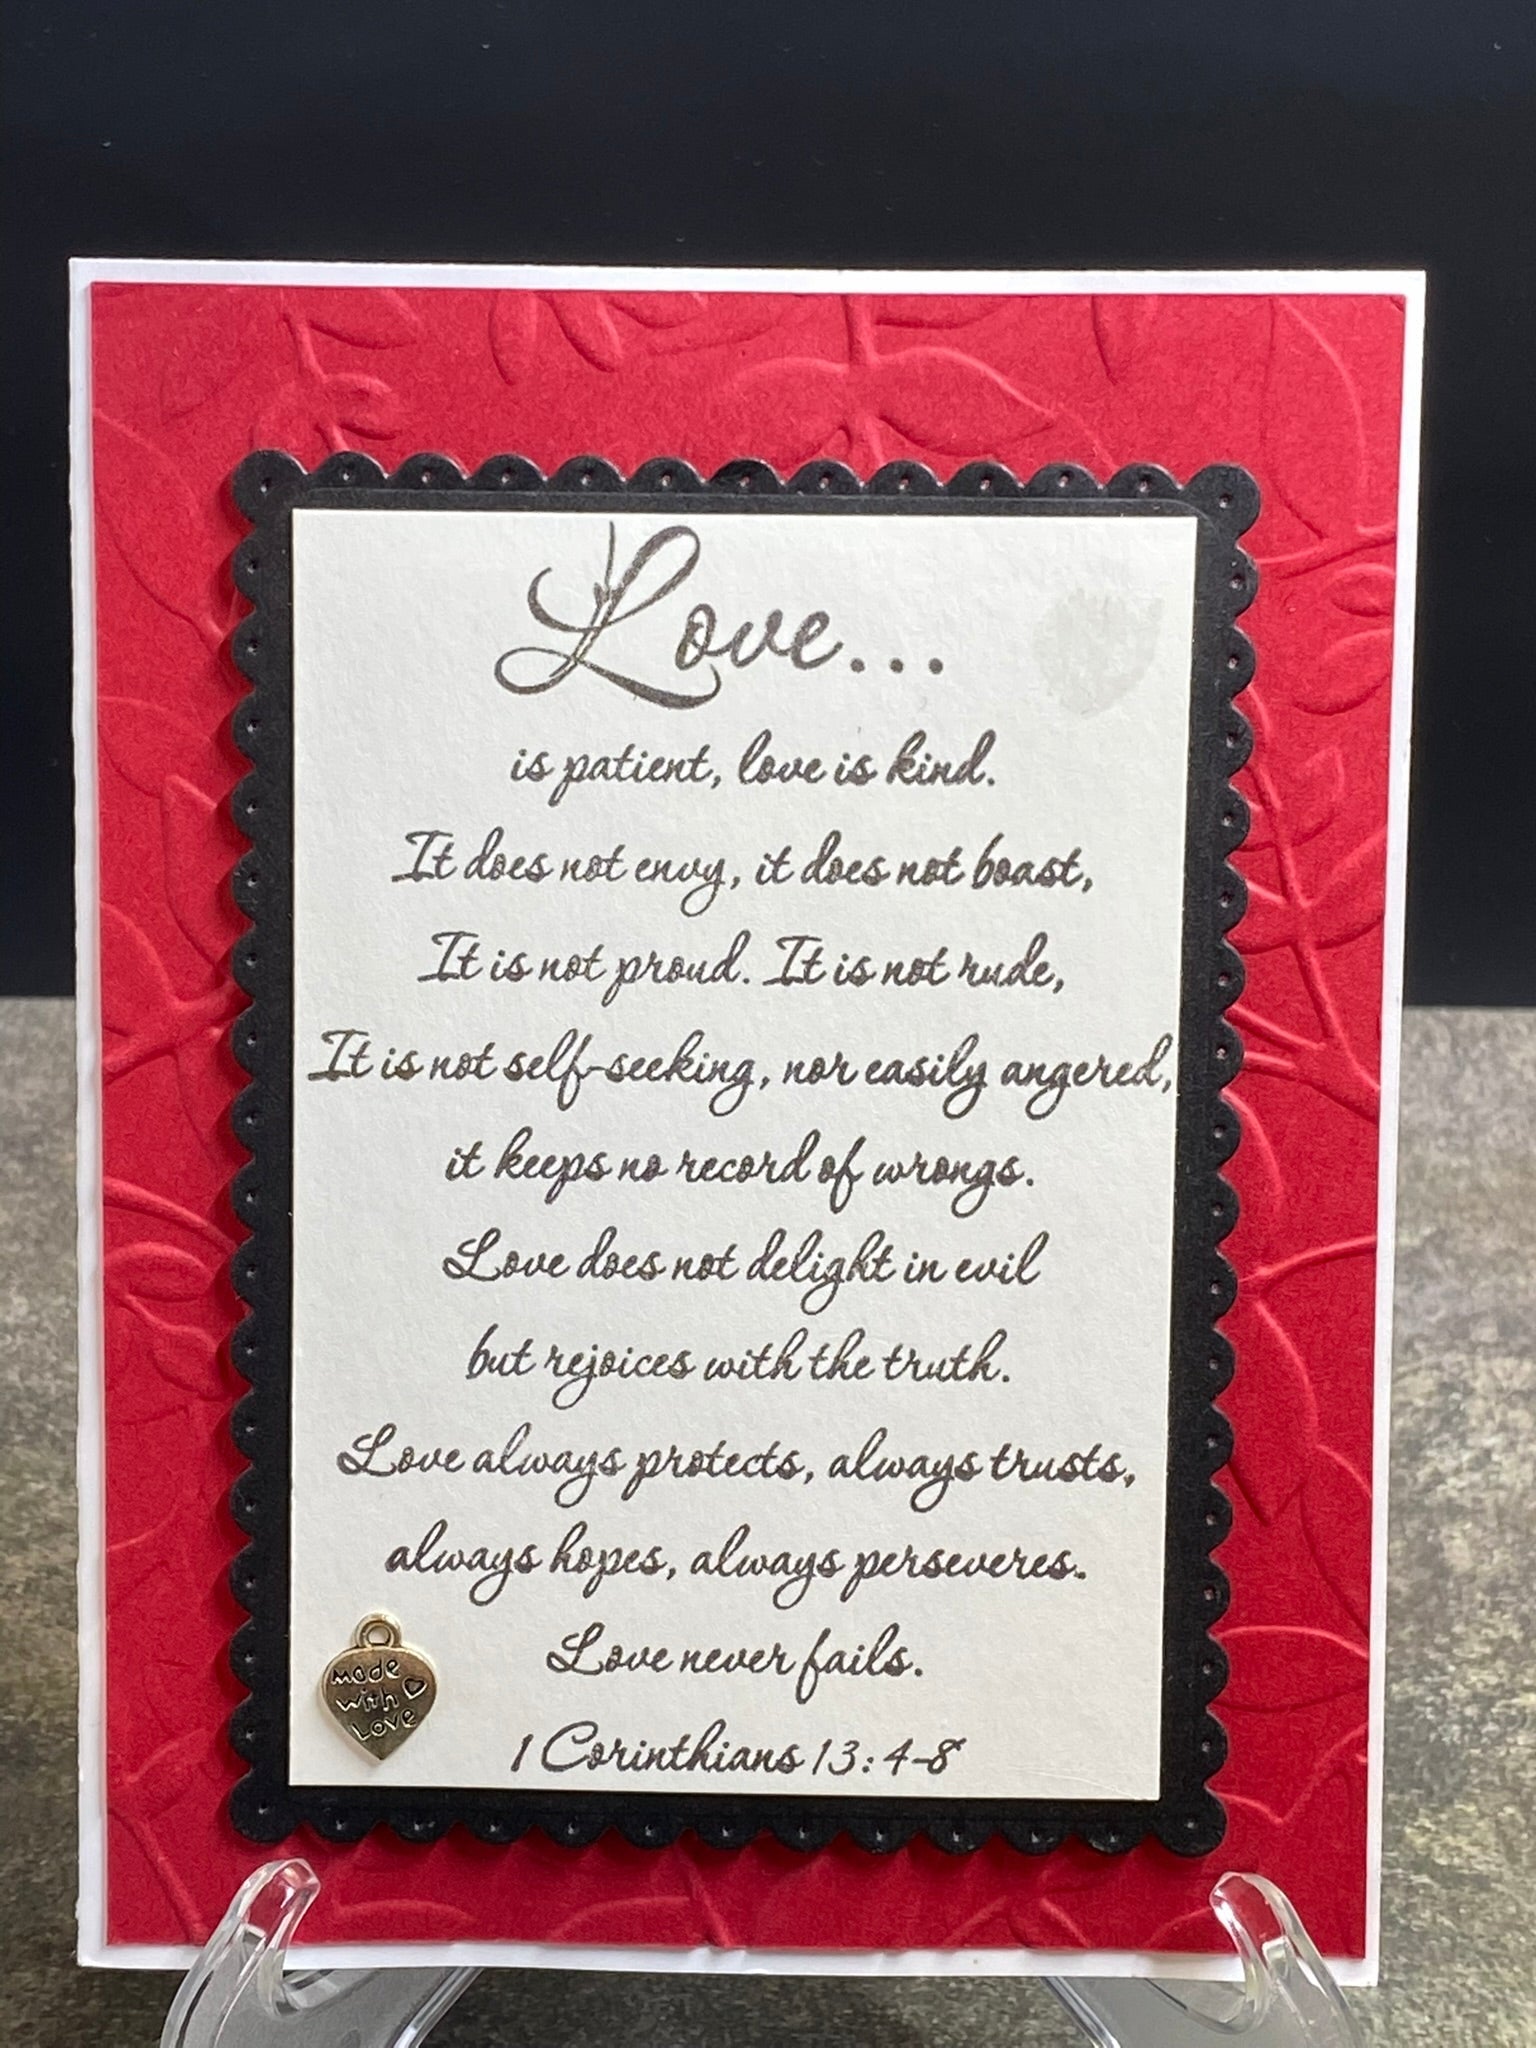 Love...
is patient, love is kind.
It does not envy, it does not boast,
It is not proud. It is not rude,
It is not self-seeking, nor easily angered,
it keeps no record of wrongs.
Love does not delight in evil
but rejoices with the truth.
Love always protects, always trusts,
always hopes, always perseveres.
Love never fails.
1 Corinthians 13:4-8
made
with
Love